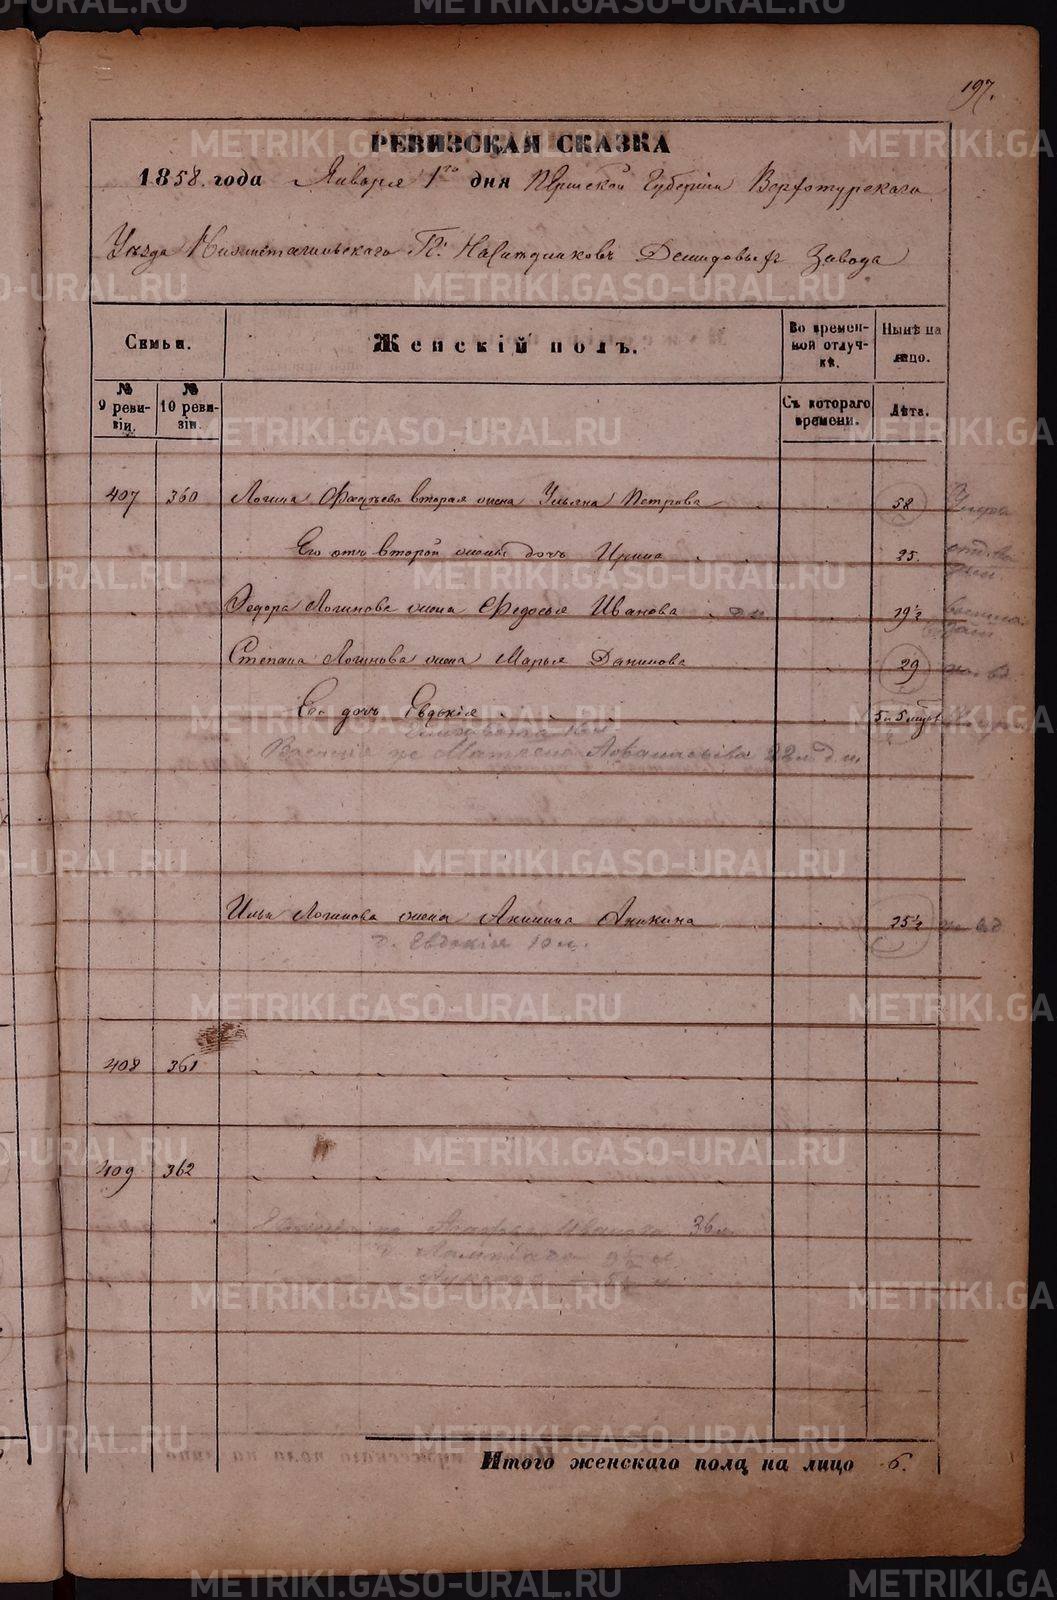 197.
РЕВИЗСКАЯ СКАЗКА
1858. года Января 1го дня Пермской Губернiи Верхотурскаго
Уѣзда Нижнетагильскаго Гг. Наслѣдниковъ Демидовыхъ Завода
Семьи.
Женскій полъ.
Во временной отлучкѣ.
Нынѣ на лицо.
№ 9 ревизіи.
№ 10 ревизіи.
Съ котораго времени.
Лѣта.
407 360 Логина Фадѣева вторая жена Ульяна Петрова 58
Его отъ второй жены дочь Ирина 25.
Федора Логинова жена Федосья Иванова 29½
Степана Логинова жена Марья Данилова 29
Его дочь Евдокія 5 и 5 мѣсц.
Матрена Афанасьева 22
Ильи Логинова жена Акилина Аникина 25½
д. Евдокія 10 л.
408 361
409 362
Агафья Иванова 36
Итого женскаго пола на лицо 6.
METRIKI.GASO-URAL.RU